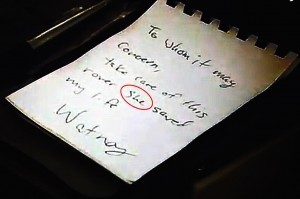 To Whom it may
Concern,
take care of this
rover. She saved
my life
Watney